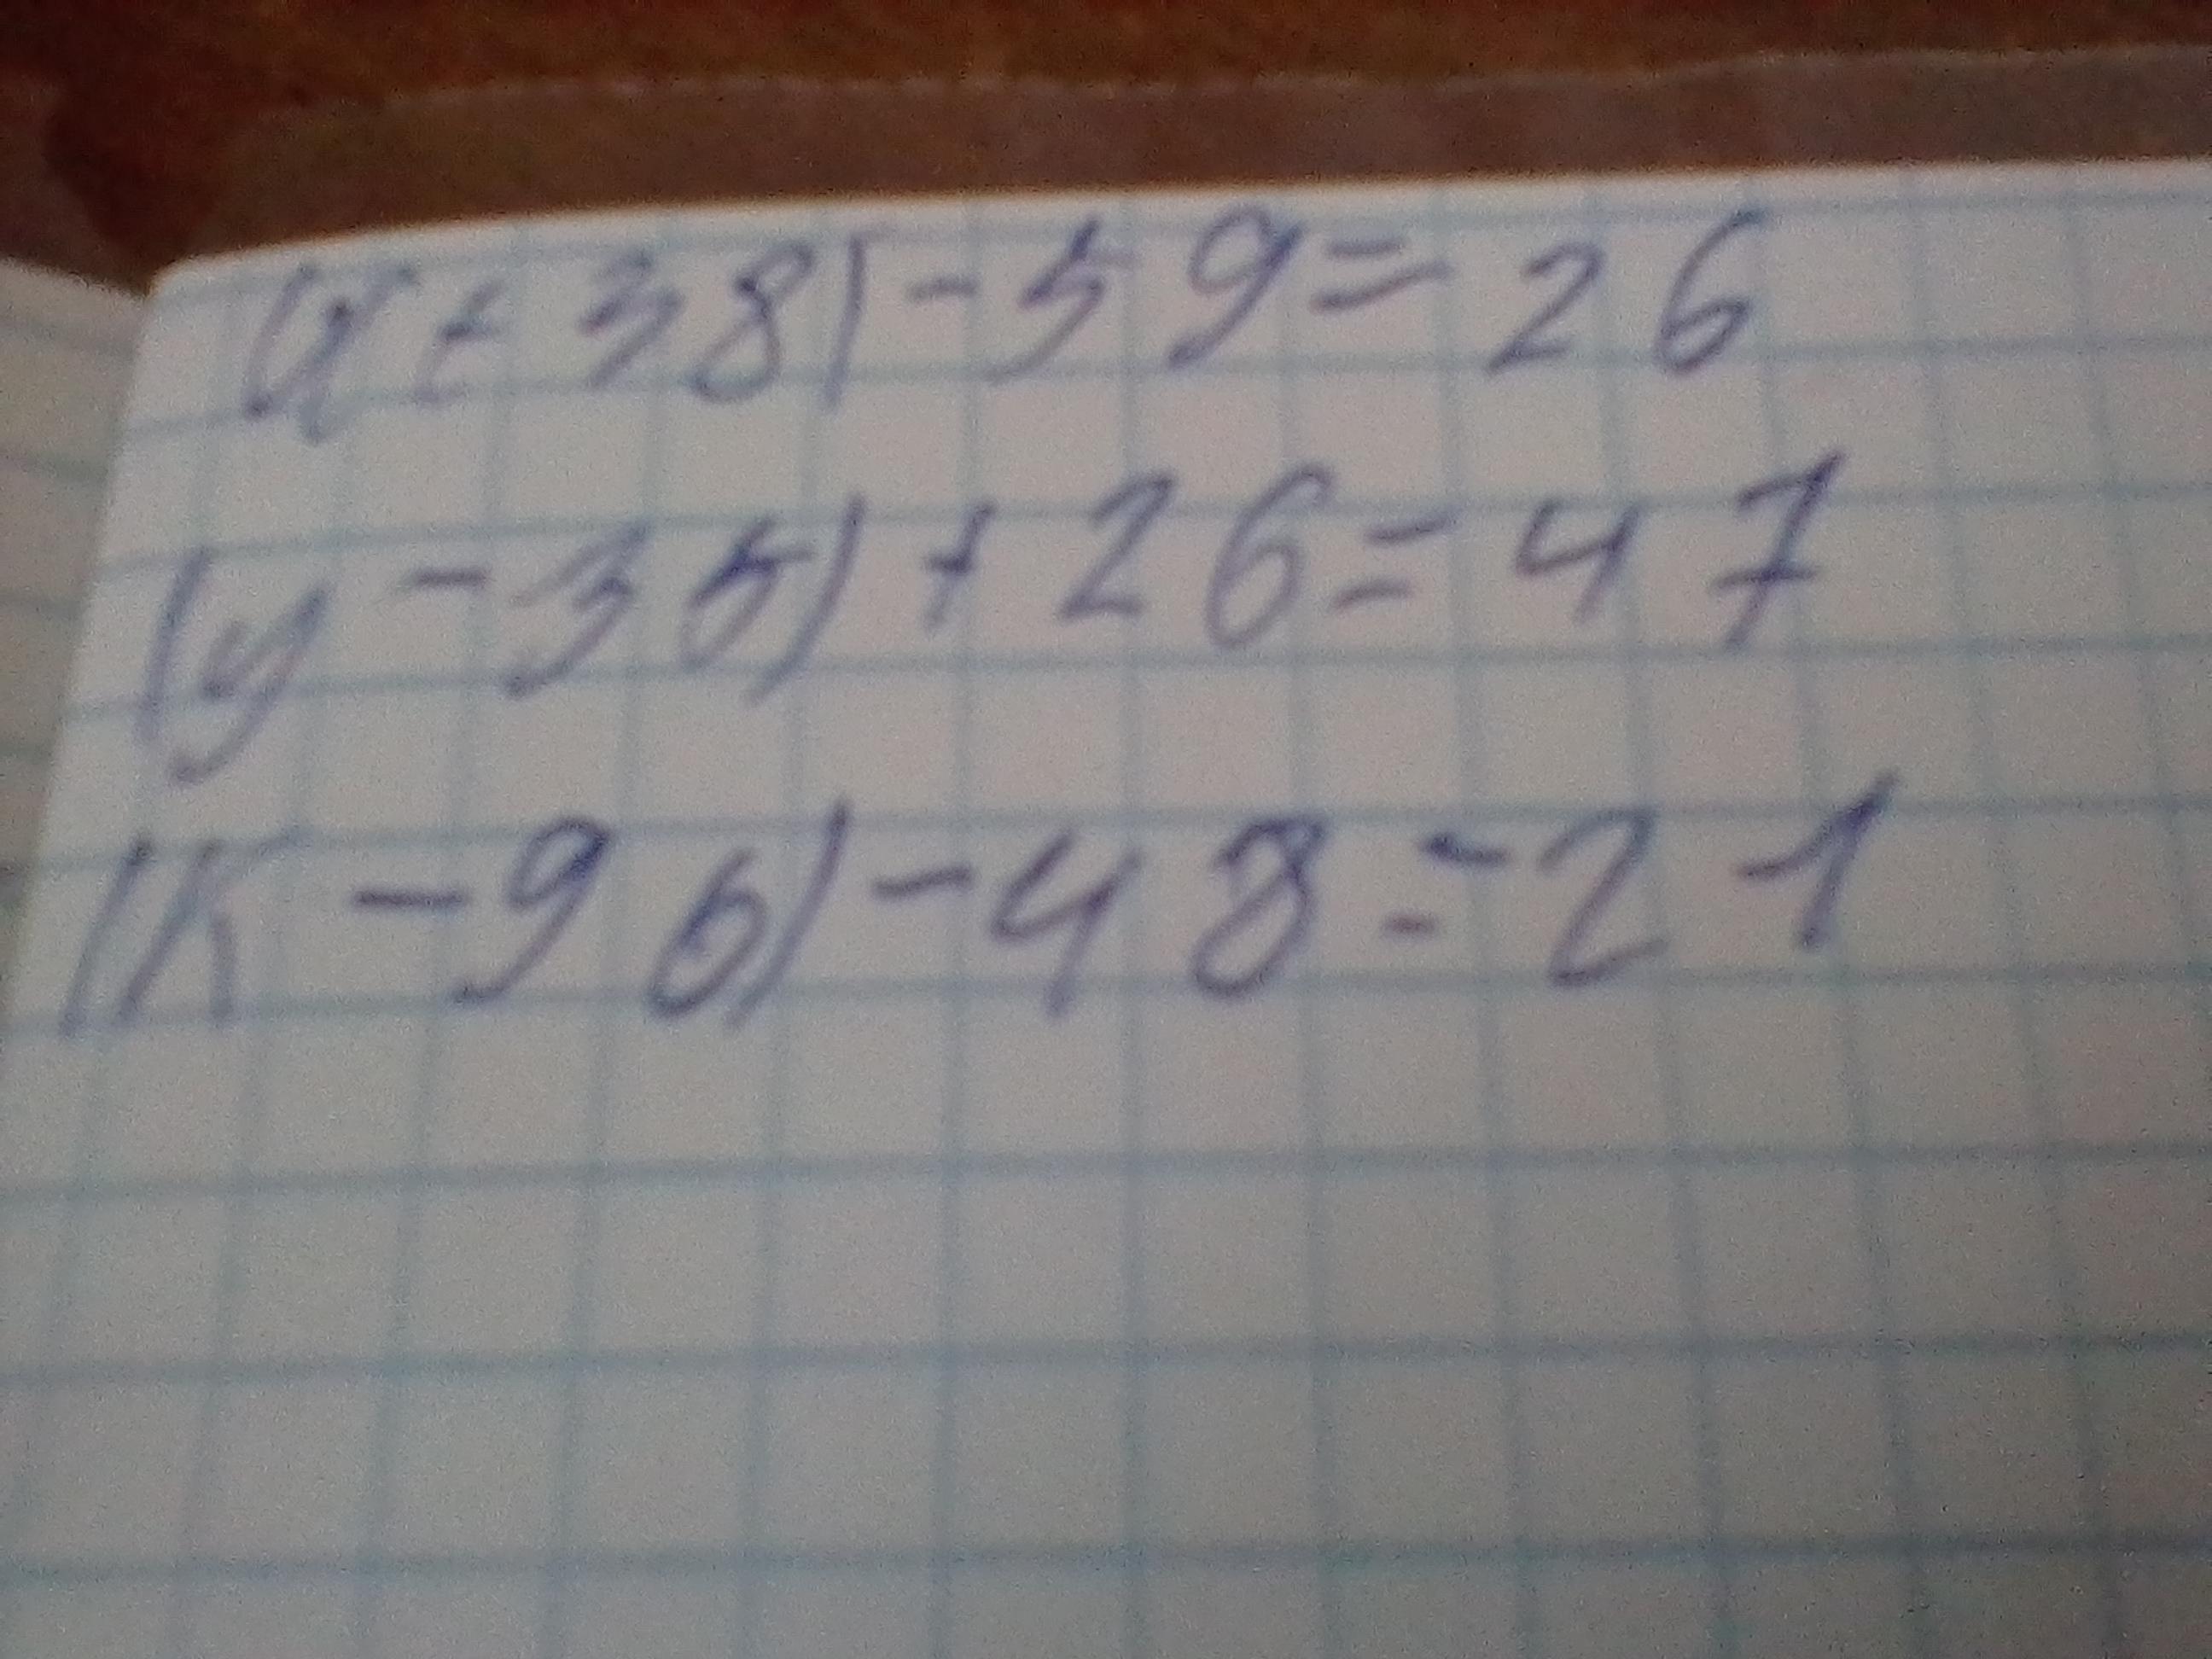 (x + 38) - 59 = 26
(y - 35) + 26 = 47
(k - 96) - 48 = 21